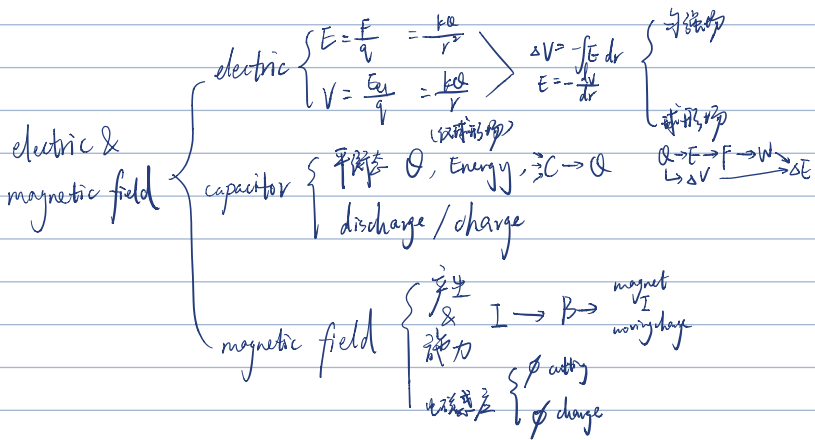 electric &
magnetic field
electric
E = F/q = kQ/r²
V = Eel/q = kQ/r
(仅球形场)
ΔV = -∫E dr
E = -dV/dr
匀强场
球形场
Q → E → F → W → ΔE
↳ ΔV → ΔE
capacitor
平衡态 Q, Energy, C → Q
discharge / charge
magnetic field
产生
&
施力
I → B → magnet
I
moving charge
电磁感应
ϕ cutting
ϕ change